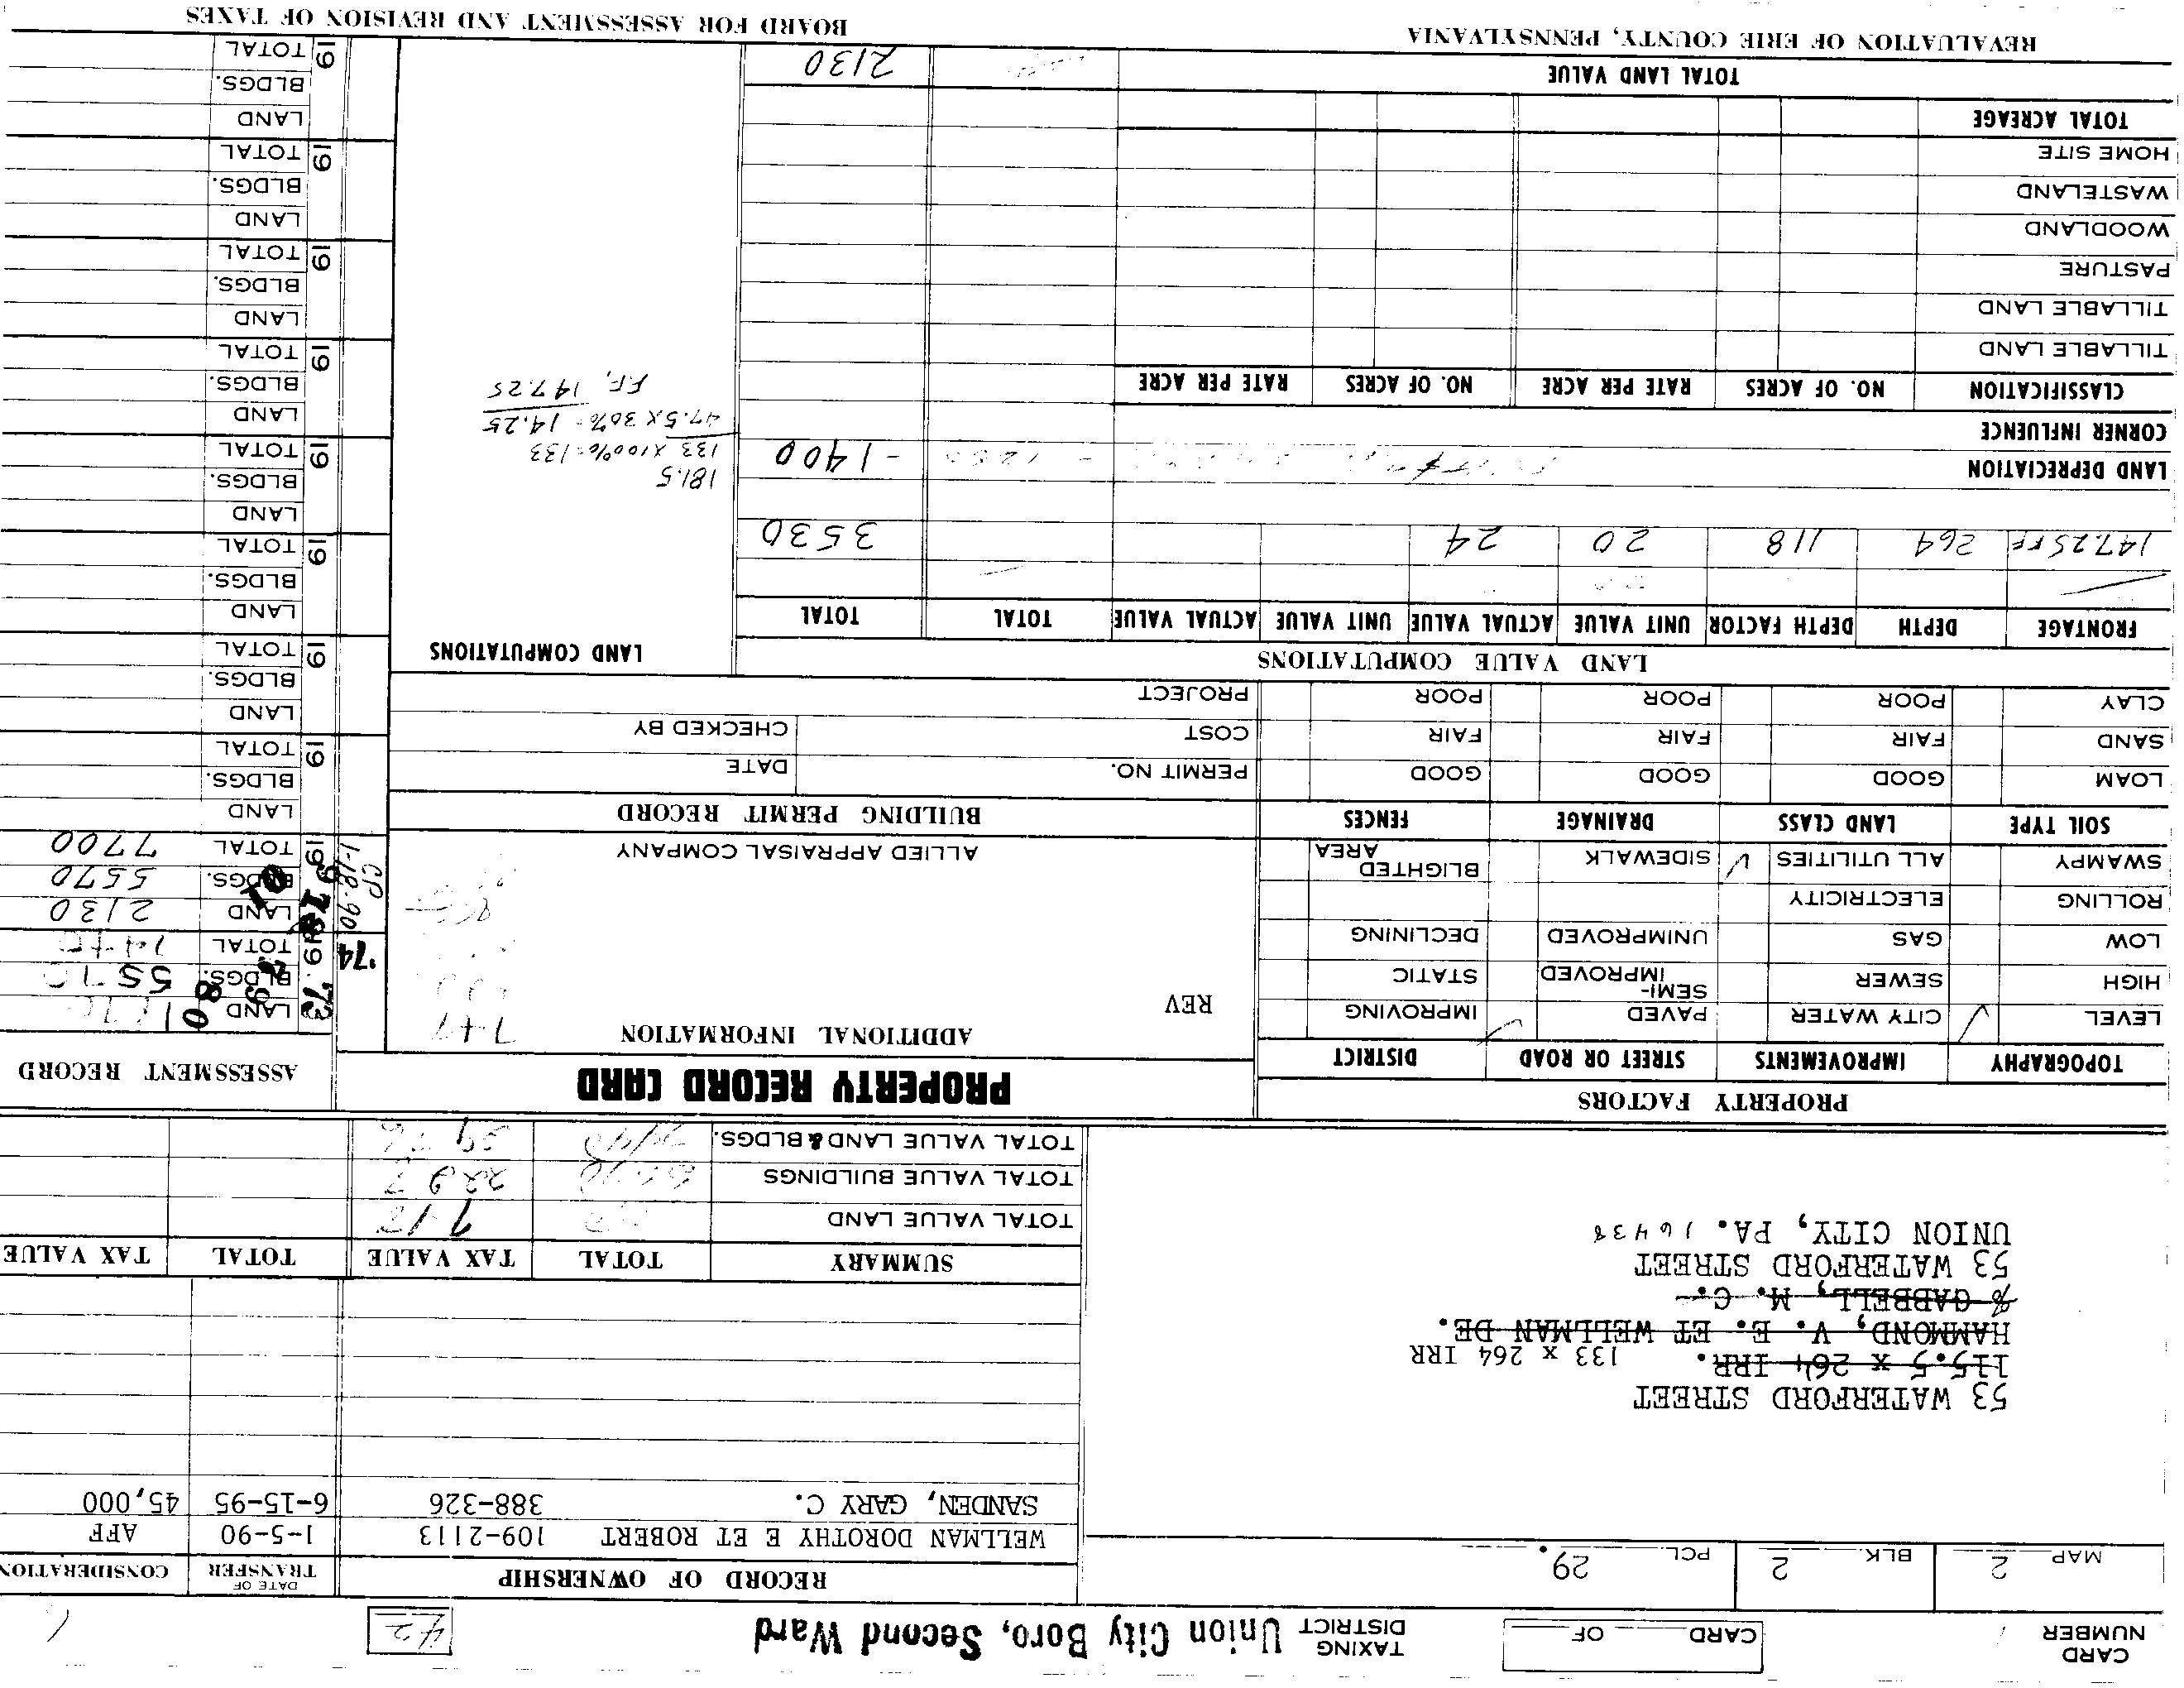 CARD NUMBER
CARD OF
TAXING DISTRICT Union City Boro, Second Ward
42
MAP 2 BLK. 2 PCL. 29.
53 WATERFORD STREET
115.5 x 264 IRR. 133 x 264 IRR
HAMMOND, V. E. ET WELLMAN DE.
% GABBELL, M. C.
53 WATERFORD STREET
UNION CITY, PA. 16438
RECORD OF OWNERSHIP DATE OF TRANSFER CONSIDERATION
WELLMAN DOROTHY E ET ROBERT 109-2113 1-5-90 AFF
SANDEN, GARY C. 388-326 6-15-95 45,000
SUMMARY TOTAL TAX VALUE TOTAL TAX VALUE
TOTAL VALUE LAND
TOTAL VALUE BUILDINGS
TOTAL VALUE LAND & BLDGS.
PROPERTY FACTORS
TOPOGRAPHY IMPROVEMENTS STREET OR ROAD DISTRICT
LEVEL ✓ CITY WATER PAVED ✓ IMPROVING
HIGH SEWER SEMI-IMPROVED STATIC
LOW GAS UNIMPROVED DECLINING
ROLLING ELECTRICITY
SWAMPY ALL UTILITIES ✓ SIDEWALK BLIGHTED AREA
SOIL TYPE LAND CLASS DRAINAGE FENCES
LOAM GOOD GOOD GOOD
SAND FAIR FAIR FAIR
CLAY POOR POOR POOR
PROPERTY RECORD CARD
ADDITIONAL INFORMATION
REV
7-47
ALLIED APPRAISAL COMPANY
BUILDING PERMIT RECORD
PERMIT NO. DATE
COST CHECKED BY
PROJECT
ASSESSMENT RECORD
'73 LAND
19 BLDGS. 5570
TOTAL
'74
80
79
78
CP 1-18-90
LAND 2130
19 BLDGS. 5570
TOTAL 7700
LAND
19 BLDGS.
TOTAL
LAND
19 BLDGS.
TOTAL
LAND
19 BLDGS.
TOTAL
LAND
19 BLDGS.
TOTAL
LAND
19 BLDGS.
TOTAL
LAND
19 BLDGS.
TOTAL
LAND
19 BLDGS.
TOTAL
LAND
19 BLDGS.
TOTAL
LAND VALUE COMPUTATIONS
LAND COMPUTATIONS
FRONTAGE DEPTH DEPTH FACTOR UNIT VALUE ACTUAL VALUE UNIT VALUE ACTUAL VALUE TOTAL TOTAL
147.25 FF 264 118 20 24 3530
LAND DEPRECIATION - 1400
CORNER INFLUENCE
181.5
133 x 100% = 133
47.5 x 30% = 14.25
F.F. 147.25
CLASSIFICATION NO. OF ACRES RATE PER ACRE NO. OF ACRES RATE PER ACRE
TILLABLE LAND
TILLABLE LAND
PASTURE
WOODLAND
WASTELAND
HOME SITE
TOTAL ACREAGE
TOTAL LAND VALUE 2130
REVALUATION OF ERIE COUNTY, PENNSYLVANIA BOARD FOR ASSESSMENT AND REVISION OF TAXES